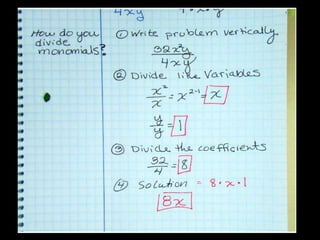 4xy
How do you
divide
monomials?
① Write problem vertically.
32x²y
4xy
② Divide like Variables
x²/x = x²⁻¹ = x
y/y = 1
③ Divide the coefficients
32/4 = 8
④ Solution = 8·x·1
8x